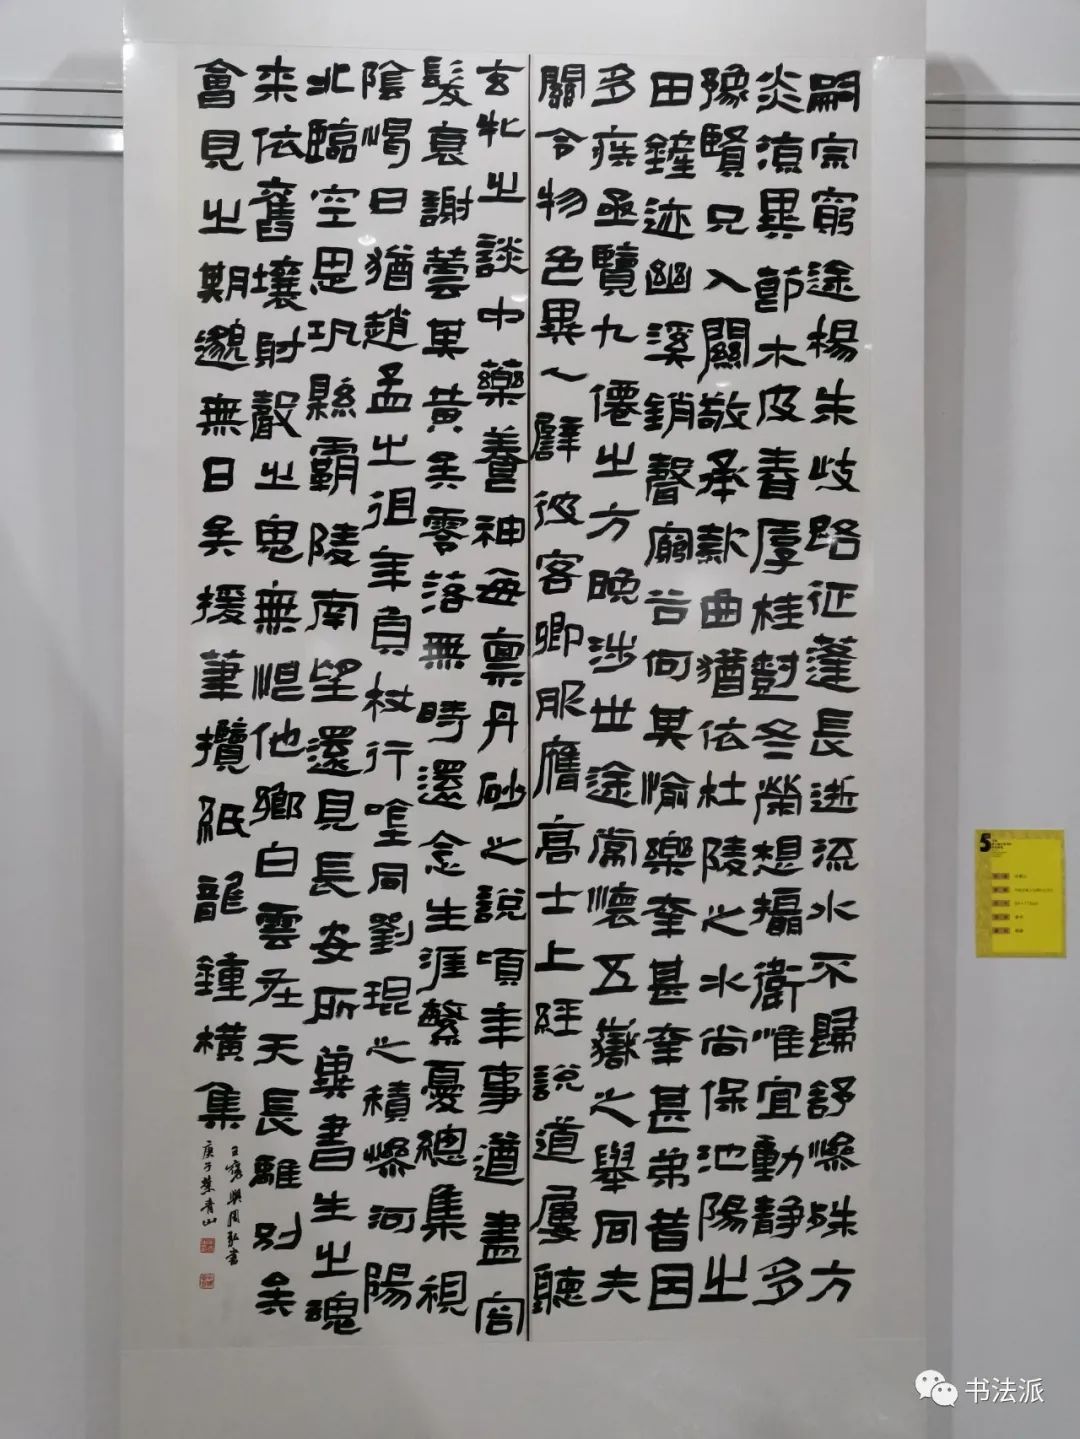 嗣宗窮途楊朱歧路征蓬長逝流水不歸舒慘殊方
炎涼異節木皮春厚桂樹冬榮想攝衛惟宜動靜多
豫賢兄入關敬承款曲猶依杜陵之水尚保池陽之
田鏟迹幽溪銷聲廟谷何其愉樂幸甚幸甚弟昔因
多疾亟覽九僊之方晚涉世途常懷五嶽之舉同夫
關令物色異人譬彼客卿服膺高士上經說道屢聽
玄牝之談中藥養神每稟丹砂之說頃年事遒盡容
髮衰謝蕓其黃矣零落無時還念生涯繁憂總集視
陰愒日猶趙孟之徂年負杖行唫同劉琨之積慘河陽
北臨空思鞏縣霸陵南望還見長安所冀書生之魂
来依舊壤射聲之鬼無恨他鄉白雲在天長離別矣
會見之期邈無日矣援筆攬紙龍鍾橫集
王褒與周弘書
庚子葉青山
5
书法派